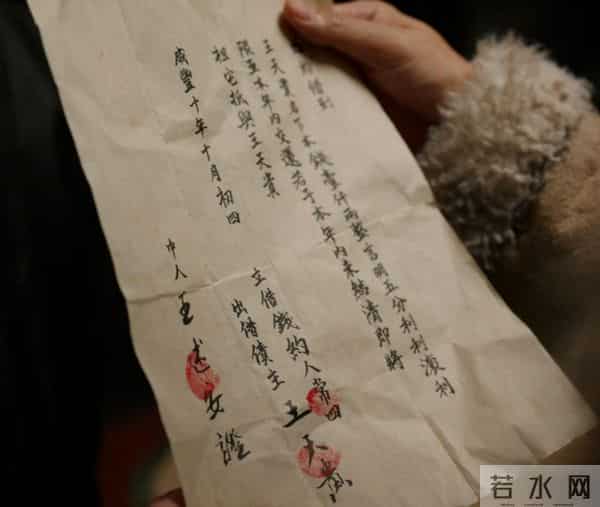 借到
王天貴名下本錢壹仟兩整言明五分利利滾利
限至本年內交還若于本年內未結清即將
祖宅抵與王天貴
咸豐十年十月初四
立借錢約人常四
出借債主王天貴
中人王
證
若水网